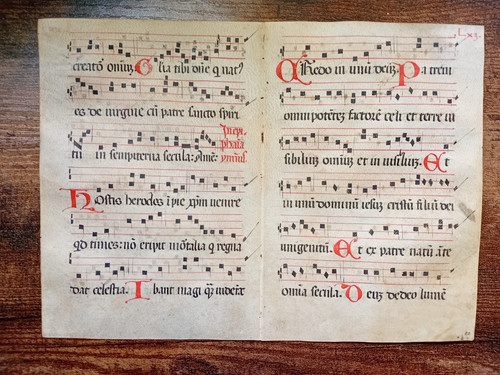 creatoȝ omiuȝ. Glia tibi dñe q nat
es de virgine cū patre sancto spiri
In epi
phaia
ymnus
tu in sempiterna secula: amē.
Hostis herodes īpie xpm uenire
qd times: nō eripit mortalia q regna
dat celestia. Ibant magi quā uiderāt
Lxj.
Credo in unū deuȝ Patrem
omnipotēteȝ factorē celi et terre ui
sibiliuȝ omiuȝ et in uisibiliuȝ. Et
in unū dominū iesuȝ cristū filiū dei
unigenitū. Et ex patre natū āte
omīa secula. Deuȝ de deo lumē